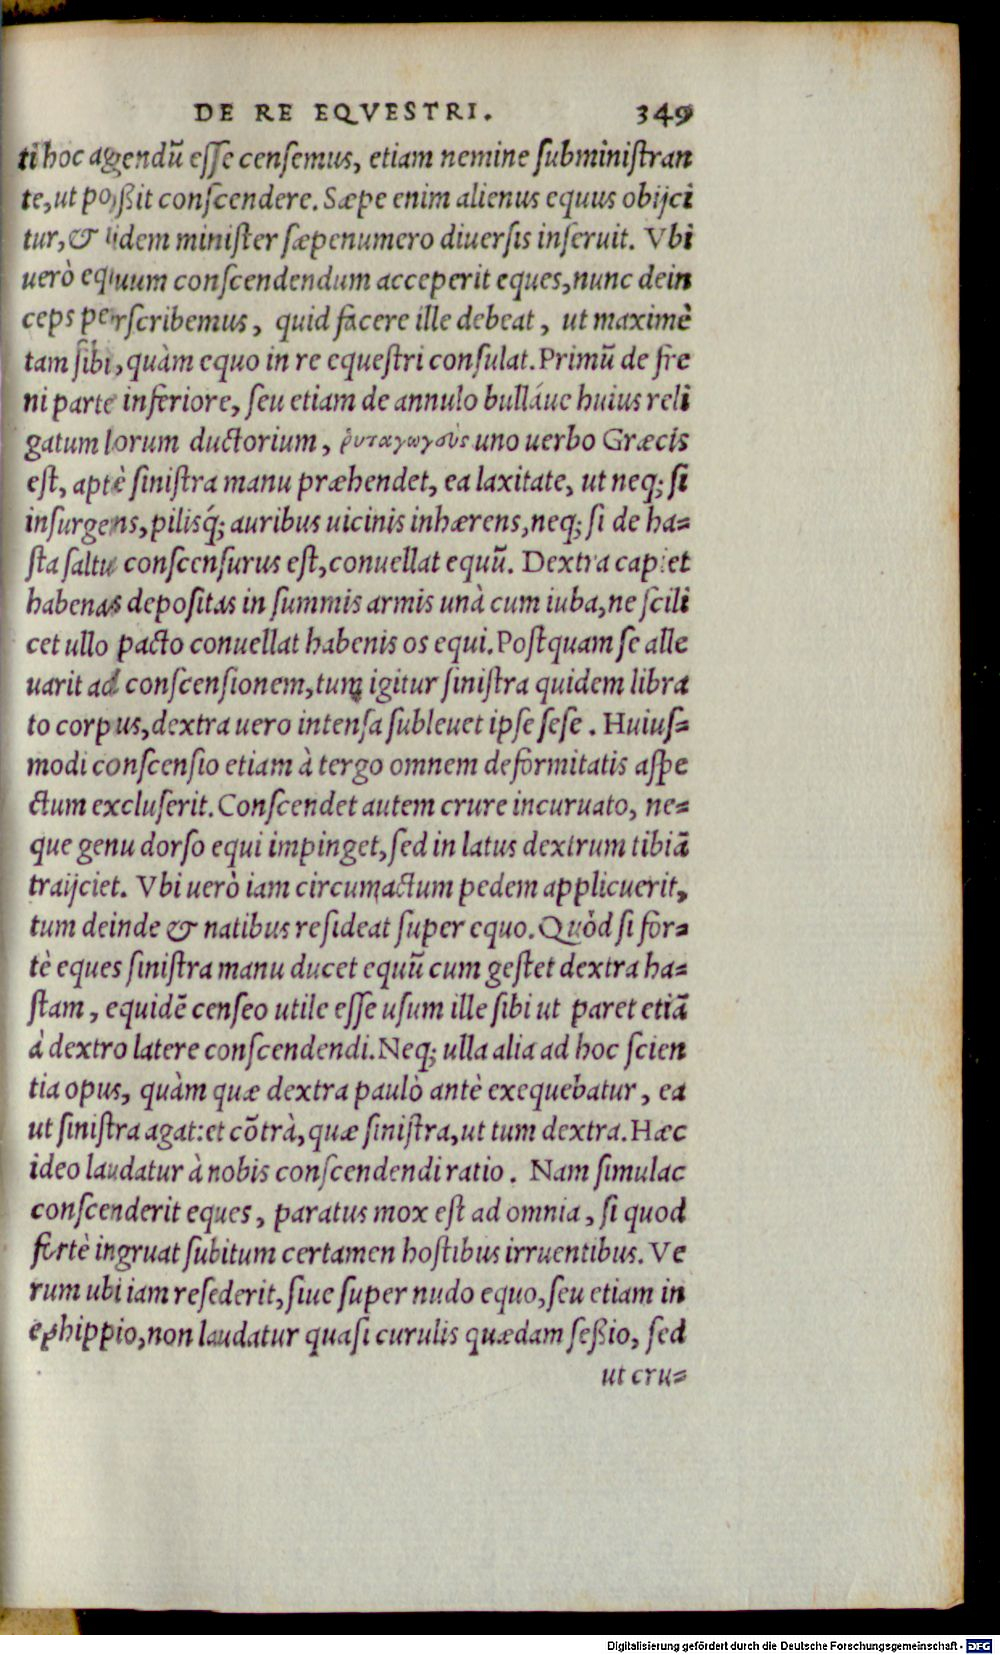 DE RE EQVESTRI. 349
ti hoc agendũ esse censemus, etiam nemine subministran
te, ut poßit conscendere. Sæpe enim alienus equus obijci
tur, & idem minister sæpenumero diuersis inseruit. Vbi
uerò equum conscendendum acceperit eques, nunc dein
ceps perscribemus, quid facere ille debeat, ut maximè
tam sibi, quàm equo in re equestri consulat. Primũ de fre
ni parte inferiore, seu etiam de annulo bulláue huius reli
gatum lorum ductorium, ῥυταγωγοὺς uno uerbo Græcis
est, aptè sinistra manu præhendet, ea laxitate, ut neq; si
insurgens, pilisq́; auribus uicinis inhærens, neq; si de ha=
sta saltu conscensurus est, conuellat equũ. Dextra capiet
habenas depositas in summis armis unà cum iuba, ne scili
cet ullo pacto conuellat habenis os equi. Postquam se alle
uarit ad conscensionem, tum igitur sinistra quidem libra
to corpus, dextra uero intensa subleuet ipse sese. Huius=
modi conscensio etiam à tergo omnem deformitatis aspe
ctum excluserit. Conscendet autem crure incuruato, ne=
que genu dorso equi impinget, sed in latus dextrum tibiã
traijciet. Vbi uerò iam circumactum pedem applicuerit,
tum deinde & natibus resideat super equo. Quòd si for=
tè eques sinistra manu ducet equũ cum gestet dextra ha=
stam, equidẽ censeo utile esse usum ille sibi ut paret etiã
à dextro latere conscendendi. Neq; ulla alia ad hoc scien
tia opus, quàm quæ dextra paulò antè exequebatur, ea
ut sinistra agat: et cõtrà, quæ sinistra, ut tum dextra. Hæc
ideo laudatur à nobis conscendendi ratio. Nam simulac
conscenderit eques, paratus mox est ad omnia, si quod
fortè ingruat subitum certamen hostibus irruentibus. Ve
rum ubi iam resederit, siue super nudo equo, seu etiam in
ephippio, non laudatur quasi curulis quædam seßio, sed
ut cru=
Digitalisierung gefördert durch die Deutsche Forschungsgemeinschaft - DFG